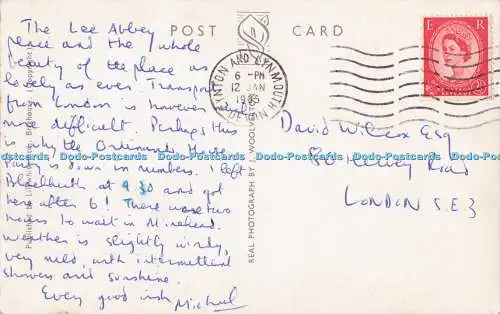 The Lee Abbey
peace and the whole
beauty of the place as
lovely as ever. Transport
from London is however
more difficult. Perhaps this
is why the House
Party is down in numbers. I left
Blackheath at 9.30 and got
here after 6! There was two
hours to wait in Minehead.
Weather is slightly windy,
very mild, with intermittent
showers and sunshine.
Every good wish Michael
POST CARD
LYNTON AND LYNMOUTH
6 - PM
12 JAN
DEVON
E R
David Wilcox Esq
80 Road
LONDON S.E.3
REAL PHOTOGRAPH BY
Dodo-Postcards Dodo-Postcards Dodo-Postcards Dodo-Postcards Dodo-Postcards